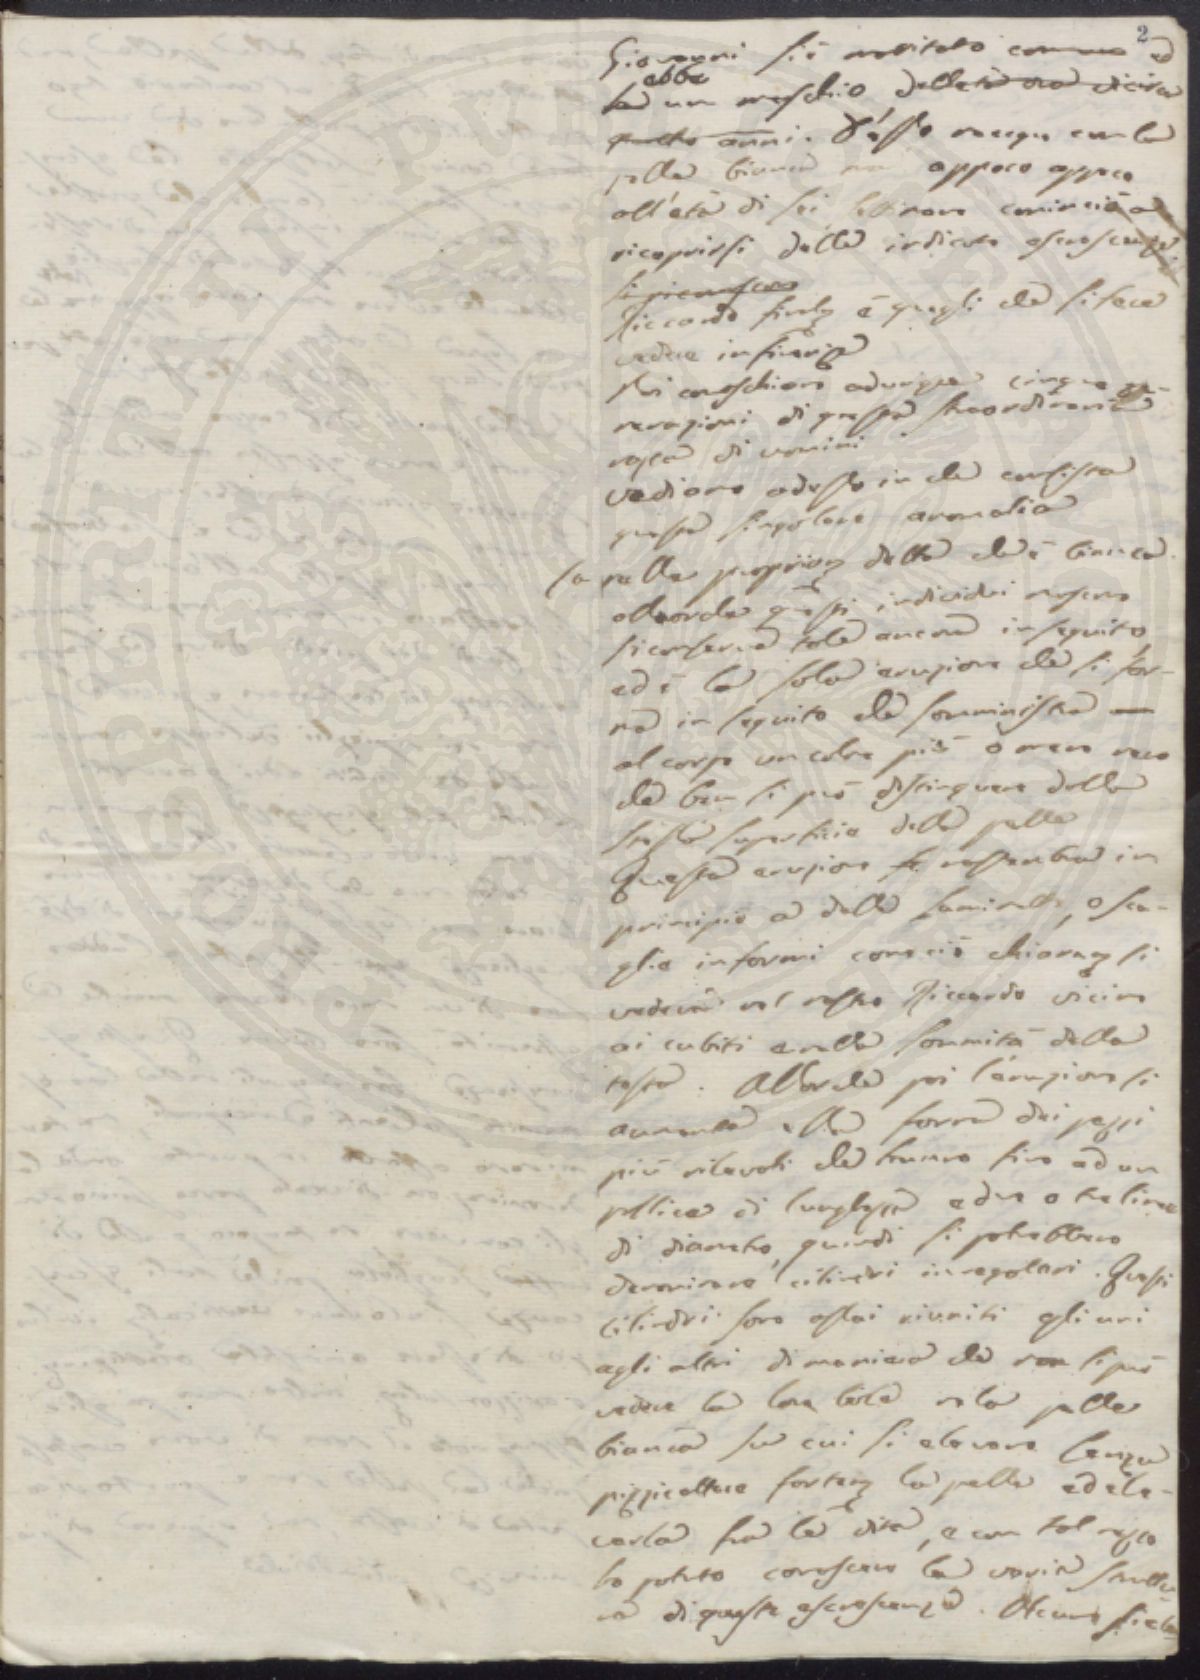 2
Giovanni si è maritato ed
ebbe
ha un maschio dell'età ora di circa
quattro anni. Questo nacque con la
pelle bianca ma appoco appoco
all'età di sei settimane cominciò a
ricoprirsi delle indicate escrescenze
si riconoscono
Riccardo finalm. è quegli che si fece
vedere in Firenze
Noi conoschiamo adunque cinque ge-
nerazioni di questa straordinaria
razza di uomini
Vediamo adesso in che consista
questa singolare anomalia
La pelle propriam. detta che è bianca
allorche questi individui nascono
si conserva tale ancora in seguito
ed è la sola eruzione che si for-
ma in seguito che somministra
al corpo un colore più o meno nero
che ben si può distinguere dalla
stessa superficie della pelle
Questa eruzione rassembra in
principio a delle laminette, o sca-
glie informi come ciò chiaram. si
vedeva nel nostro Riccardo vicino
ai cubiti e nella sommità della
testa. Allorche poi l'eruzione si
aumenta ella forma dei pezzi
più rilevati che hanno fino ad un
pollice di lunghezza e due o tre linee
di diametro, quindi si potrebbero
denominare cilindri irregolari. Questi
cilindri sono assai riuniti gli uni
agli altri di maniera che non si può
vedere la loro base ne la pelle
bianca su cui si elevano senza
pizzicottare fortem. la pelle ed ele-
varla fra le dita, e con tal mezzo
ho potuto conoscere la varia struttu-
ra di queste escrescenze. Alcune si ele-